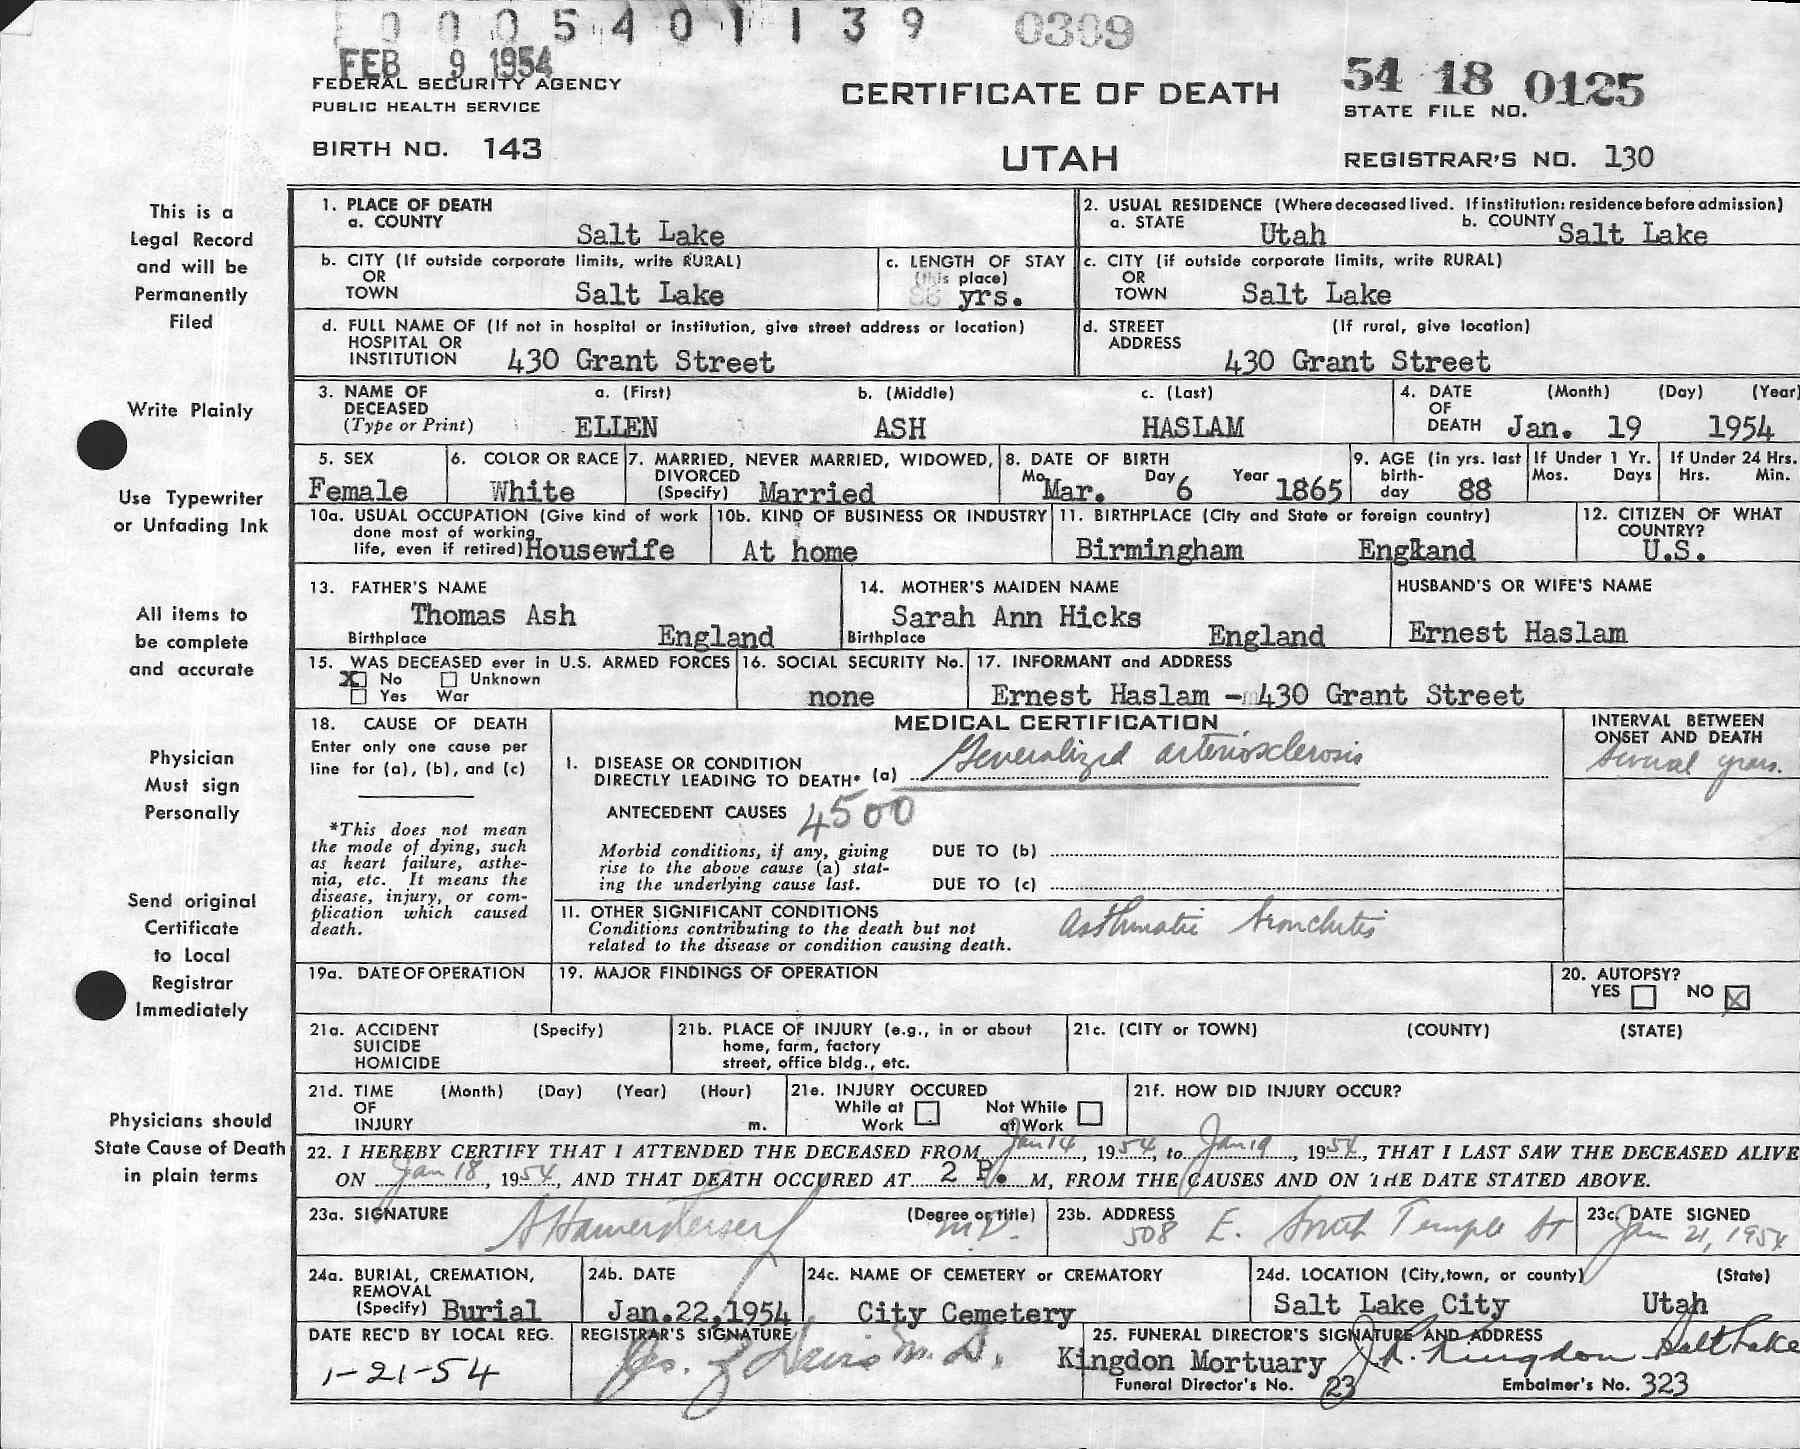 0005401139 0309
FEB 9 1954
FEDERAL SECURITY AGENCY
PUBLIC HEALTH SERVICE
BIRTH NO. 143
CERTIFICATE OF DEATH
UTAH
54 18 0125
STATE FILE NO.
REGISTRAR'S NO. 130
This is a
Legal Record
and will be
Permanently
Filed
Write Plainly
Use Typewriter
or Unfading Ink
All items to
be complete
and accurate
Physician
Must sign
Personally
Send original
Certificate
to Local
Registrar
Immediately
Physicians should
State Cause of Death
in plain terms
1. PLACE OF DEATH
a. COUNTY Salt Lake
2. USUAL RESIDENCE (Where deceased lived. If institution: residence before admission)
a. STATE Utah b. COUNTY Salt Lake
b. CITY (If outside corporate limits, write RURAL)
OR
TOWN Salt Lake
c. LENGTH OF STAY
(this place)
yrs.
c. CITY (if outside corporate limits, write RURAL)
OR
TOWN Salt Lake
d. FULL NAME OF (If not in hospital or institution, give street address or location)
HOSPITAL OR
INSTITUTION 430 Grant Street
d. STREET (If rural, give location)
ADDRESS
430 Grant Street
3. NAME OF DECEASED (Type or Print)
a. (First) b. (Middle) c. (Last)
ELLEN ASH HASLAM
4. DATE OF DEATH (Month) (Day) (Year)
Jan. 19 1954
5. SEX
Female
6. COLOR OR RACE
White
7. MARRIED, NEVER MARRIED, WIDOWED,
DIVORCED
(Specify) Married
8. DATE OF BIRTH
Mo. Mar. Day 6 Year 1865
9. AGE (in yrs. last
birth-
day 88
If Under 1 Yr.
Mos. Days
If Under 24 Hrs.
Hrs. Min.
10a. USUAL OCCUPATION (Give kind of work
done most of working
life, even if retired) Housewife
10b. KIND OF BUSINESS OR INDUSTRY
At home
11. BIRTHPLACE (City and State or foreign country)
Birmingham England
12. CITIZEN OF WHAT
COUNTRY?
U.S.
13. FATHER'S NAME
Thomas Ash
Birthplace England
14. MOTHER'S MAIDEN NAME
Sarah Ann Hicks
Birthplace England
HUSBAND'S OR WIFE'S NAME
Ernest Haslam
15. WAS DECEASED ever in U.S. ARMED FORCES
X No Unknown
Yes War
16. SOCIAL SECURITY No.
none
17. INFORMANT and ADDRESS
Ernest Haslam - 430 Grant Street
18. CAUSE OF DEATH
Enter only one cause per
line for (a), (b), and (c)
*This does not mean
the mode of dying, such
as heart failure, asthe-
nia, etc. It means the
disease, injury, or com-
plication which caused
death.
MEDICAL CERTIFICATION
I. DISEASE OR CONDITION
DIRECTLY LEADING TO DEATH* (a) Generalized arteriosclerosis
INTERVAL BETWEEN
ONSET AND DEATH
Several years.
ANTECEDENT CAUSES 4500
Morbid conditions, if any, giving
rise to the above cause (a) stat-
ing the underlying cause last.
DUE TO (b)
DUE TO (c)
II. OTHER SIGNIFICANT CONDITIONS
Conditions contributing to the death but not
related to the disease or condition causing death.
Asthmatic bronchitis
19a. DATE OF OPERATION
19. MAJOR FINDINGS OF OPERATION
20. AUTOPSY?
YES NO X
21a. ACCIDENT (Specify)
SUICIDE
HOMICIDE
21b. PLACE OF INJURY (e.g., in or about
home, farm, factory
street, office bldg., etc.
21c. (CITY or TOWN) (COUNTY) (STATE)
21d. TIME (Month) (Day) (Year) (Hour)
OF
INJURY m.
21e. INJURY OCCURED
While at Work Not While at Work
21f. HOW DID INJURY OCCUR?
22. I HEREBY CERTIFY THAT I ATTENDED THE DECEASED FROM Jan 14, 1954, to Jan 19, 1954, THAT I LAST SAW THE DECEASED ALIVE
ON Jan 18, 1954, AND THAT DEATH OCCURED AT 2 P. M, FROM THE CAUSES AND ON THE DATE STATED ABOVE.
23a. SIGNATURE (Degree or title)
M.D.
23b. ADDRESS
508 E. South Temple St
23c. DATE SIGNED
Jan 21, 1954
24a. BURIAL, CREMATION,
REMOVAL
(Specify) Burial
24b. DATE
Jan.22,1954
24c. NAME OF CEMETERY or CREMATORY
City Cemetery
24d. LOCATION (City, town, or county) (State)
Salt Lake City Utah
DATE REC'D BY LOCAL REG.
1-21-54
REGISTRAR'S SIGNATURE
Davis M.D.
25. FUNERAL DIRECTOR'S SIGNATURE AND ADDRESS
Kingdon Mortuary Kingdon Salt Lake
Funeral Director's No. 23 Embalmer's No. 323